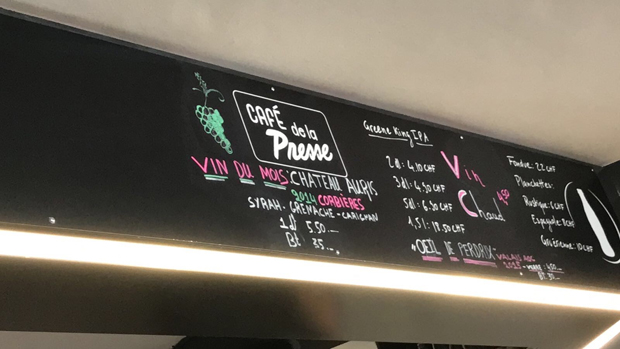 CAFÉ de la
Presse
VIN DU MOIS: CHATEAU AURIS
2014 CORBIÈRES
SYRAH. GRENACHE - CARIGNAN
1dl 5.50.-
Bt 35.-
Greene King IPA
2dl: 4.10 CHF
3dl: 4.90 CHF
5dl: 6.90 CHF
1,5l: 18.50 CHF
Vin
Chaud
OEIL DE PERDRIX - VALAIS AOC
VERRE
Fondue: 22 CHF
Planchettes:
Rustique:
Espagnole: